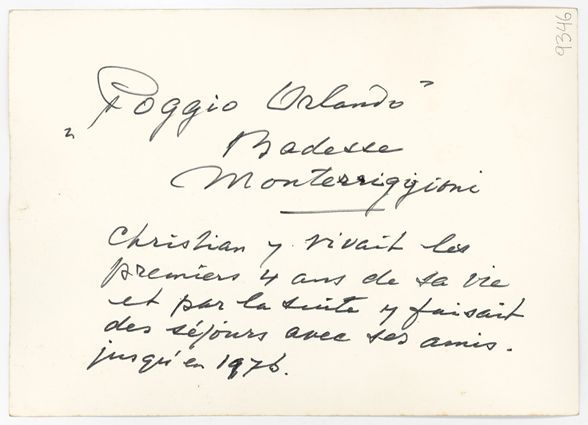 9346
"Poggio Orlando"
Badesse
Monterriggioni
Christian y vivait les
premiers 4 ans de sa vie
et par la suite y faisait
des séjours avec ses amis.
jusqu'en 1976.